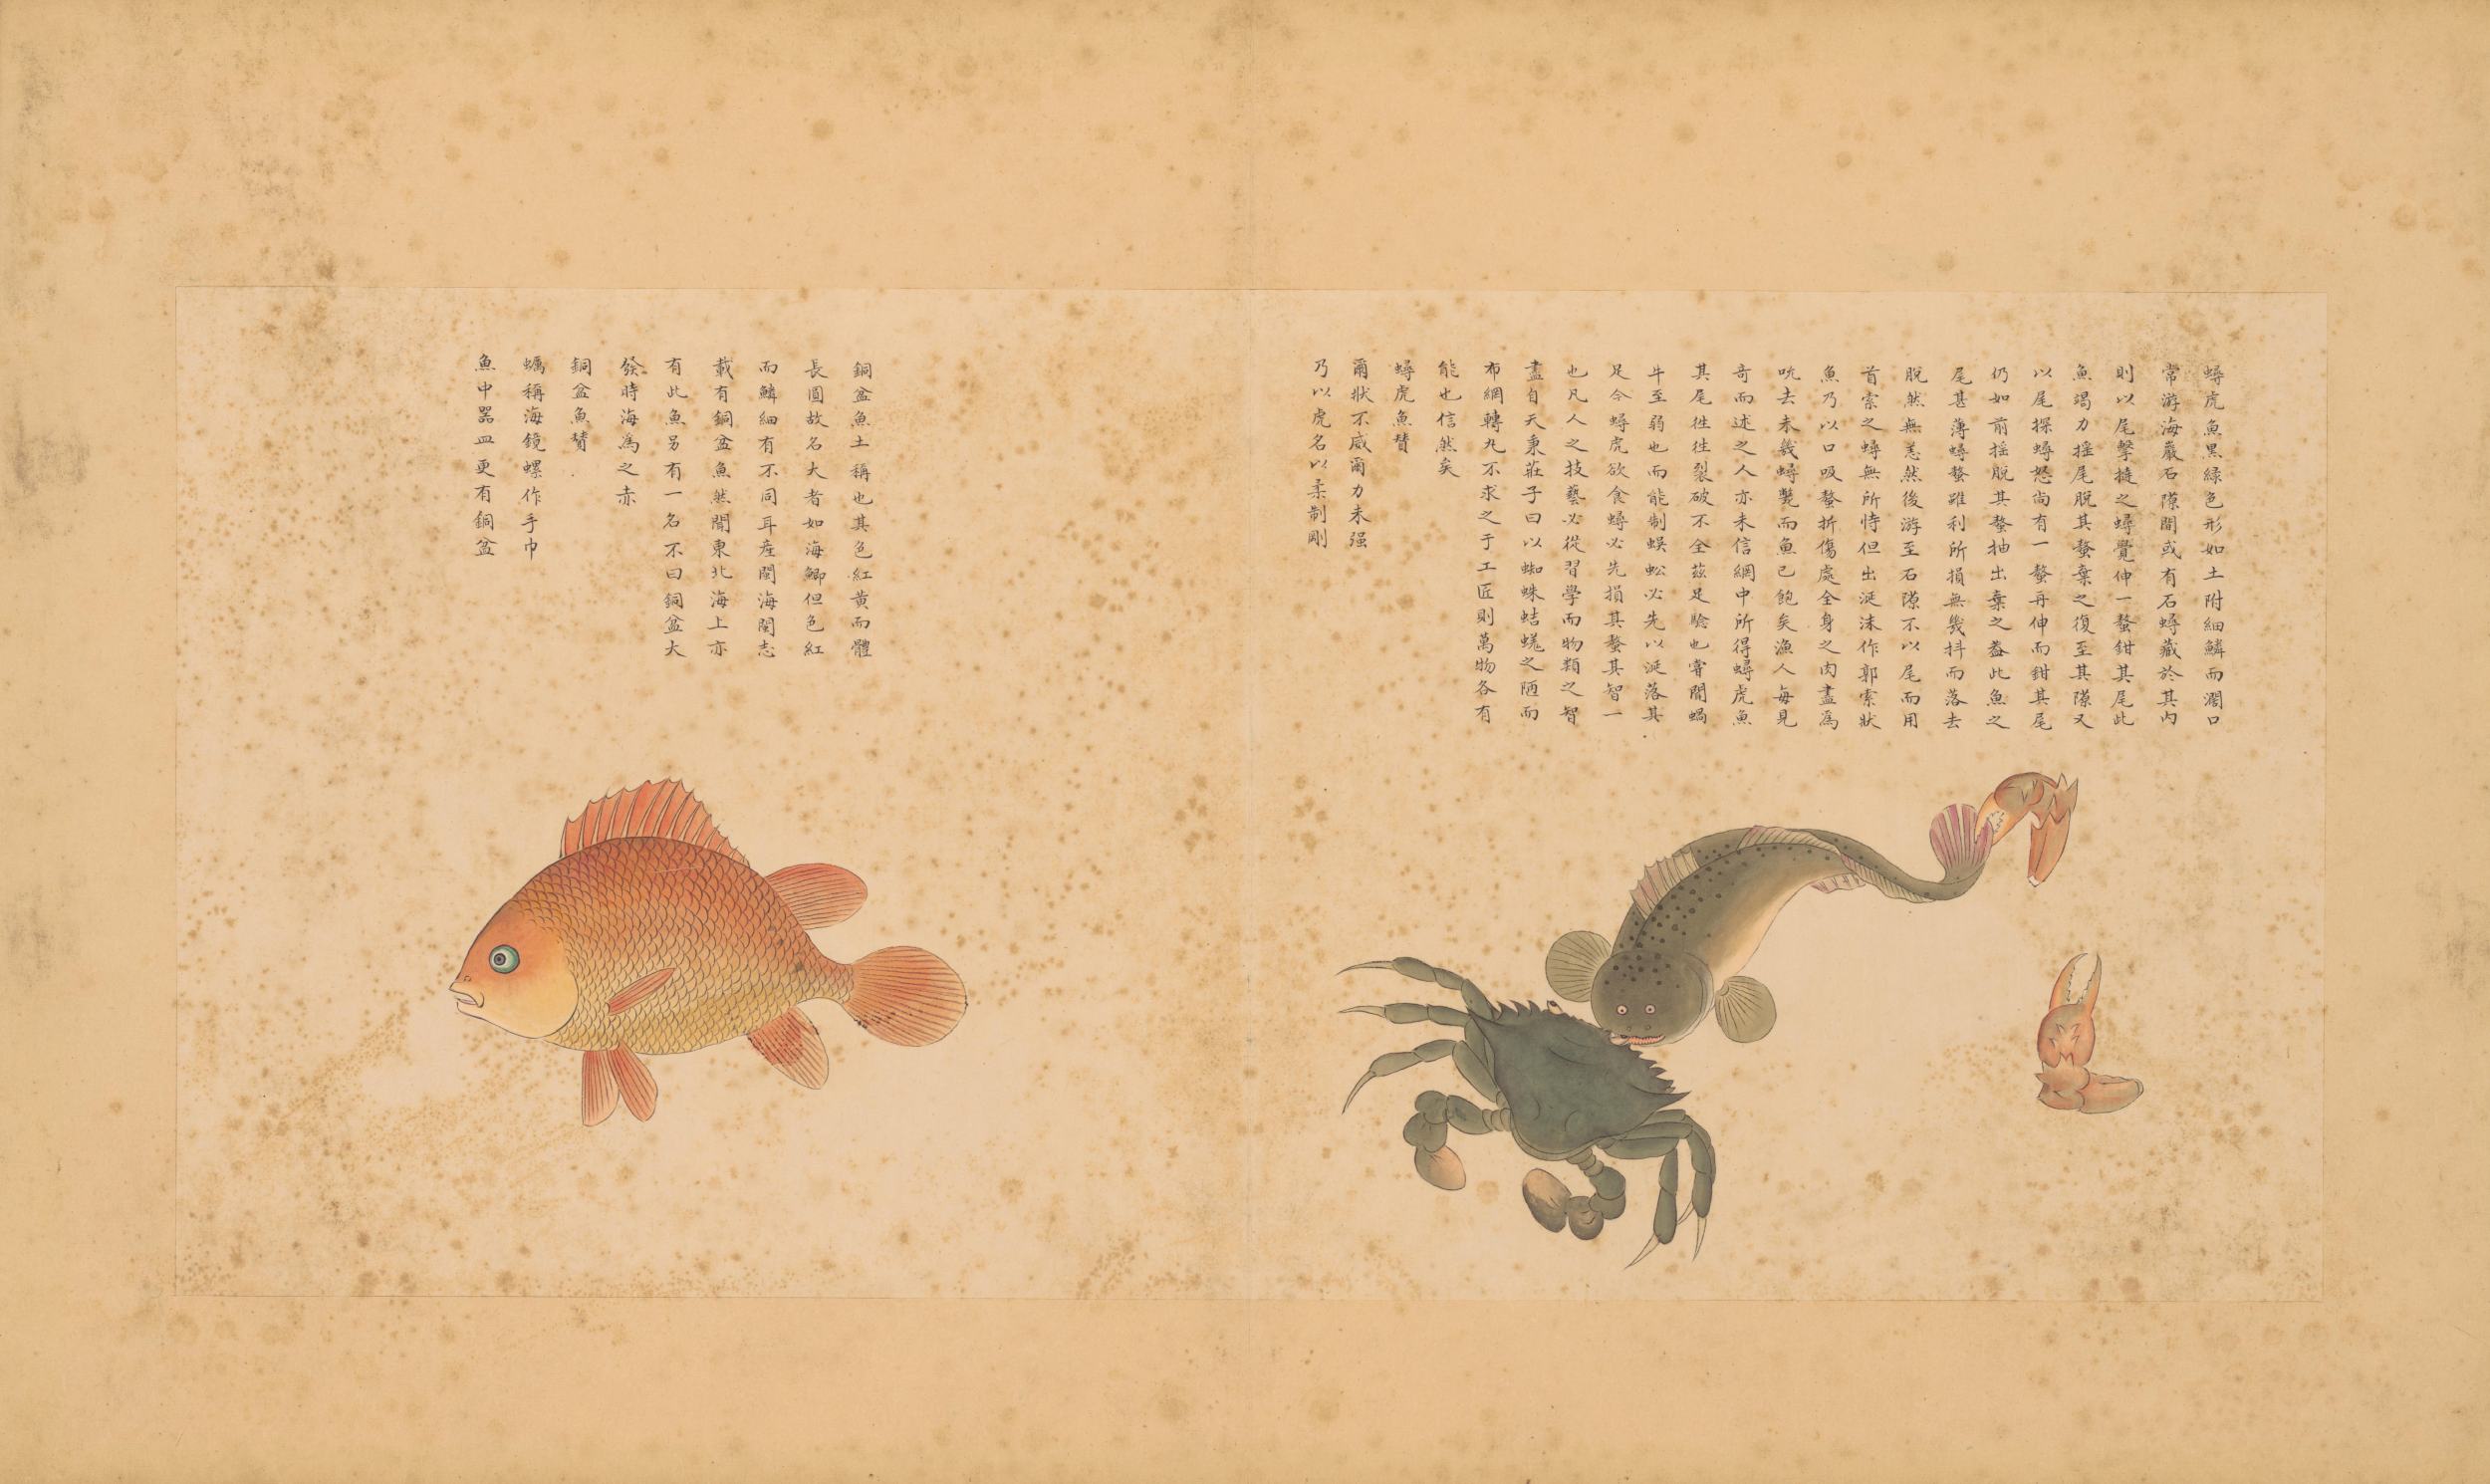 蟳虎魚黑綠色形如土附細鱗而濶口
常游海巖石隙間或有石蟳藏於其內
則以尾擊撻之蟳覺伸一螯鉗其尾此
魚竭力搖尾脫其螯棄之復至其隙又
以尾探蟳怒尚有一螯再伸而鉗其尾
仍如前搖脫其螯抽出棄之葢此魚之
尾甚薄蟳螯雖利所損無幾抖而落去
脫然無恙然後游至石隙不以尾而用
首索之蟳無所恃但出涎沫作郭索狀
魚乃以口吸螯折傷處全身之肉盡爲
吮去未幾蟳斃而魚已飽矣漁人每見
奇而述之人亦未信網中所得蟳虎魚
其尾徃徃裂破不全茲足驗也甞聞蝸
牛至弱也而能制蜈蚣必先以涎落其
足今蟳虎欲食蟳必先損其螯其智一
也凡人之技藝必從習學而物類之智
盡自天秉莊子曰以蜘蛛蛣蜣之陋而
布網轉丸不求之于工匠則萬物各有
能也信然矣
蟳虎魚贊
爾狀不威爾力未强
乃以虎名以柔制剛
銅盆魚土稱也其色紅黄而體
長圓故名大者如海鯽但色紅
而鱗細有不同耳產閩海閩志
載有銅盆魚然聞東北海上亦
有此魚另有一名不曰銅盆大
發時海為之赤
銅盆魚贊
蠣稱海鏡螺作手巾
魚中器皿更有銅盆